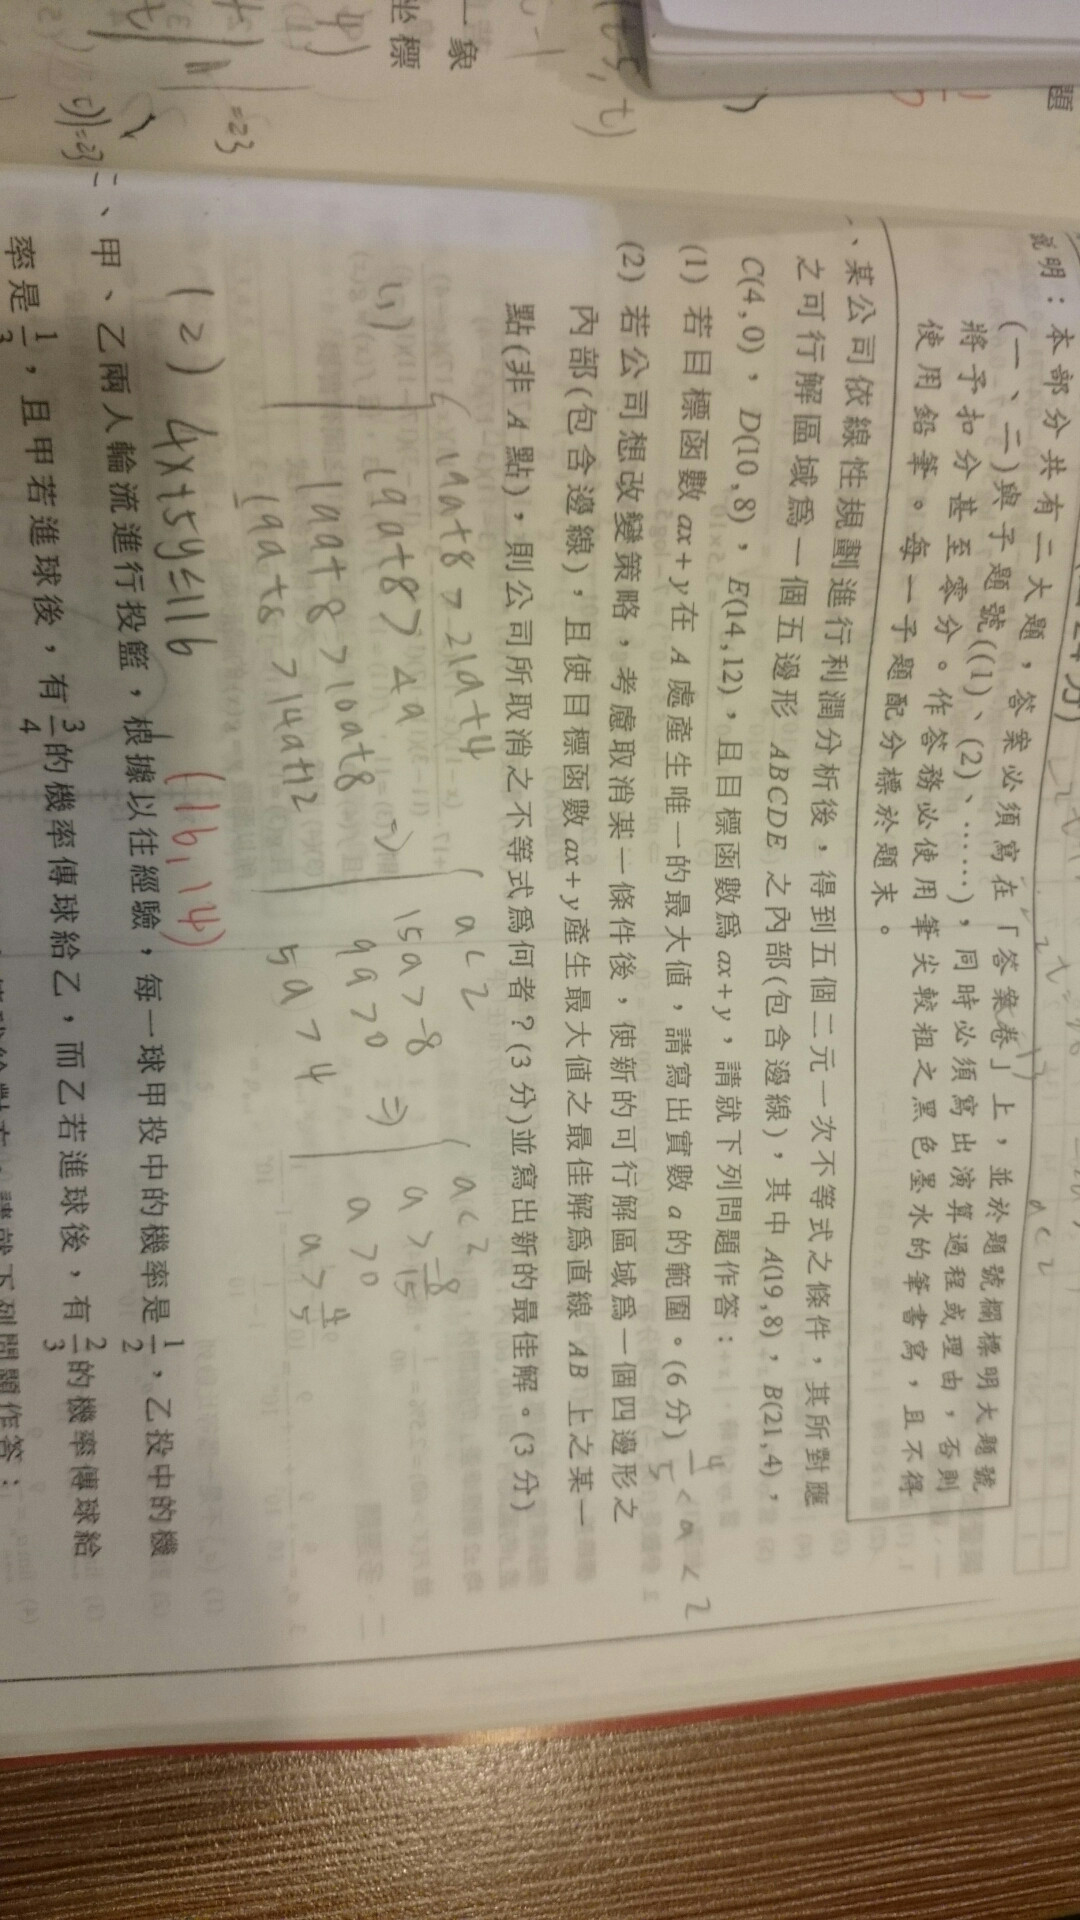 題
一象
坐標
(t-5, t)
=23
=23
說明：本部分共有二大題，答案必須寫在「答案卷」上，並於題號欄標明大題號
(一、二)與子題號((1)、(2)、……)，同時必須寫出演算過程或理由，否則
將予扣分甚至零分。作答務必使用筆尖較粗之黑色墨水的筆書寫，且不得
使用鉛筆。每一子題配分標於題末。
a<2
、某公司依線性規劃進行利潤分析後，得到五個二元一次不等式之條件，其所對應
之可行解區域為一個五邊形 ABCDE 之內部(包含邊線)，其中 A(19,8)，B(21,4)，
C(4,0)，D(10,8)，E(14,12)，且目標函數為 ax+y，請就下列問題作答：
(1) 若目標函數 ax+y 在 A 處產生唯一的最大值，請寫出實數 a 的範圍。(6 分) 4/5 < a < 2
(2) 若公司想改變策略，考慮取消某一條件後，使新的可行解區域為一個四邊形之
內部(包含邊線)，且使目標函數 ax+y 產生最大值之最佳解為直線 AB 上之某一
點(非 A 點)，則公司所取消之不等式為何者？(3 分)並寫出新的最佳解。(3 分)
19a+8 > 21a+4
a<2
a<2
(1)
19a+8 > 4a
⇒
15a > -8
a > -8/15
19a+8 > 10a+8
9a > 0
⇒
a > 0
19a+8 > 14a+12
5a > 4
a > 4/5
(2) 4x+5y≤116
(16,14)
二、甲、乙兩人輪流進行投籃，根據以往經驗，每一球甲投中的機率是 1/2，乙投中的機
率是 1/3，且甲若進球後，有 3/4 的機率傳球給乙，而乙若進球後，有 2/3 的機率傳球給
請就下列問題作答：